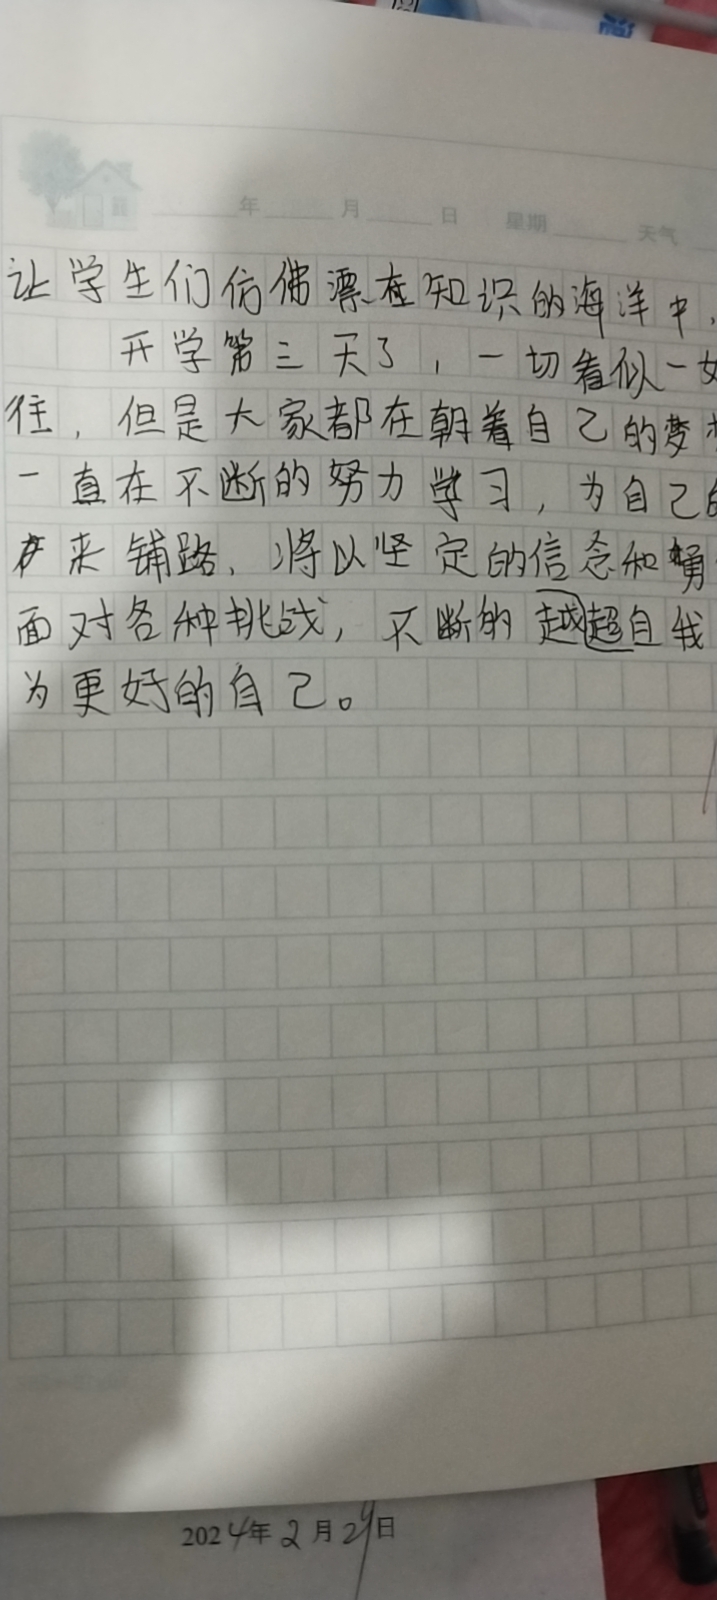 年 月 日 星期 天气
让学生们仿佛漂在知识的海洋中，
开学第三天了，一切看似一如
往，但是大家都在朝着自己的梦
一直在不断的努力学习，为自己的
来铺路，将以坚定的信念和勇
面对各种挑战，不断的越超自我
为更好的自己。
2024年2月29日